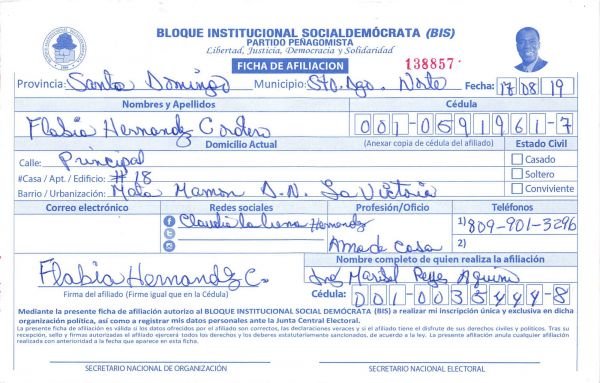 BLOQUE INSTITUCIONAL SOCIALDEMÓCRATA (BIS)
PARTIDO PEÑAGOMISTA
Libertad, Justicia, Democracia y Solidaridad
FICHA DE AFILIACION
138857
Provincia: Santo Domingo Municipio: Sto. Dgo. Norte Fecha: 17/08/19
Nombres y Apellidos Cédula
Flabia Hernandz Cordero 001-0591961-7
Domicilio Actual (Anexar copia de cédula del afiliado) Estado Civil
Calle: Principal Casado
#Casa / Apt. / Edificio: #18 Soltero
Barrio / Urbanización: Mata Mamon S.D.N. La Victoria Conviviente
Correo electrónico Redes sociales Profesión/Oficio Teléfonos
Claudia la Hernandz 1) 809-901-3296
Ama de Casa 2)
Nombre completo de quien realiza la afiliación
Flabia Hernandz C. Maribel Reyes Aquino
Firma del afiliado (Firme igual que en la Cédula) Cédula: 001-0035444-8
Mediante la presente ficha de afiliación autorizo al BLOQUE INSTITUCIONAL SOCIAL DEMÓCRATA (BIS) a realizar mi inscripción única y exclusiva en dicha
organización política, así como a registrar mis datos personales ante la Junta Central Electoral.
La presente ficha de afiliación es válida si los datos ofrecidos por el afiliado son correctos, las declaraciones veraces y si el afiliado tiene el disfrute de sus derechos civiles y políticos. Tras su
recepción, sello y firmas autorizadas el afiliado ejercerá todos los derechos y los deberes estatutariamente sancionados, de acuerdo a la ley. La presente afiliación anula cualquier afiliación
realizada con anterioridad a la fecha que aparece en esta ficha.
SECRETARIO NACIONAL DE ORGANIZACIÓN SECRETARIO NACIONAL ELECTORAL